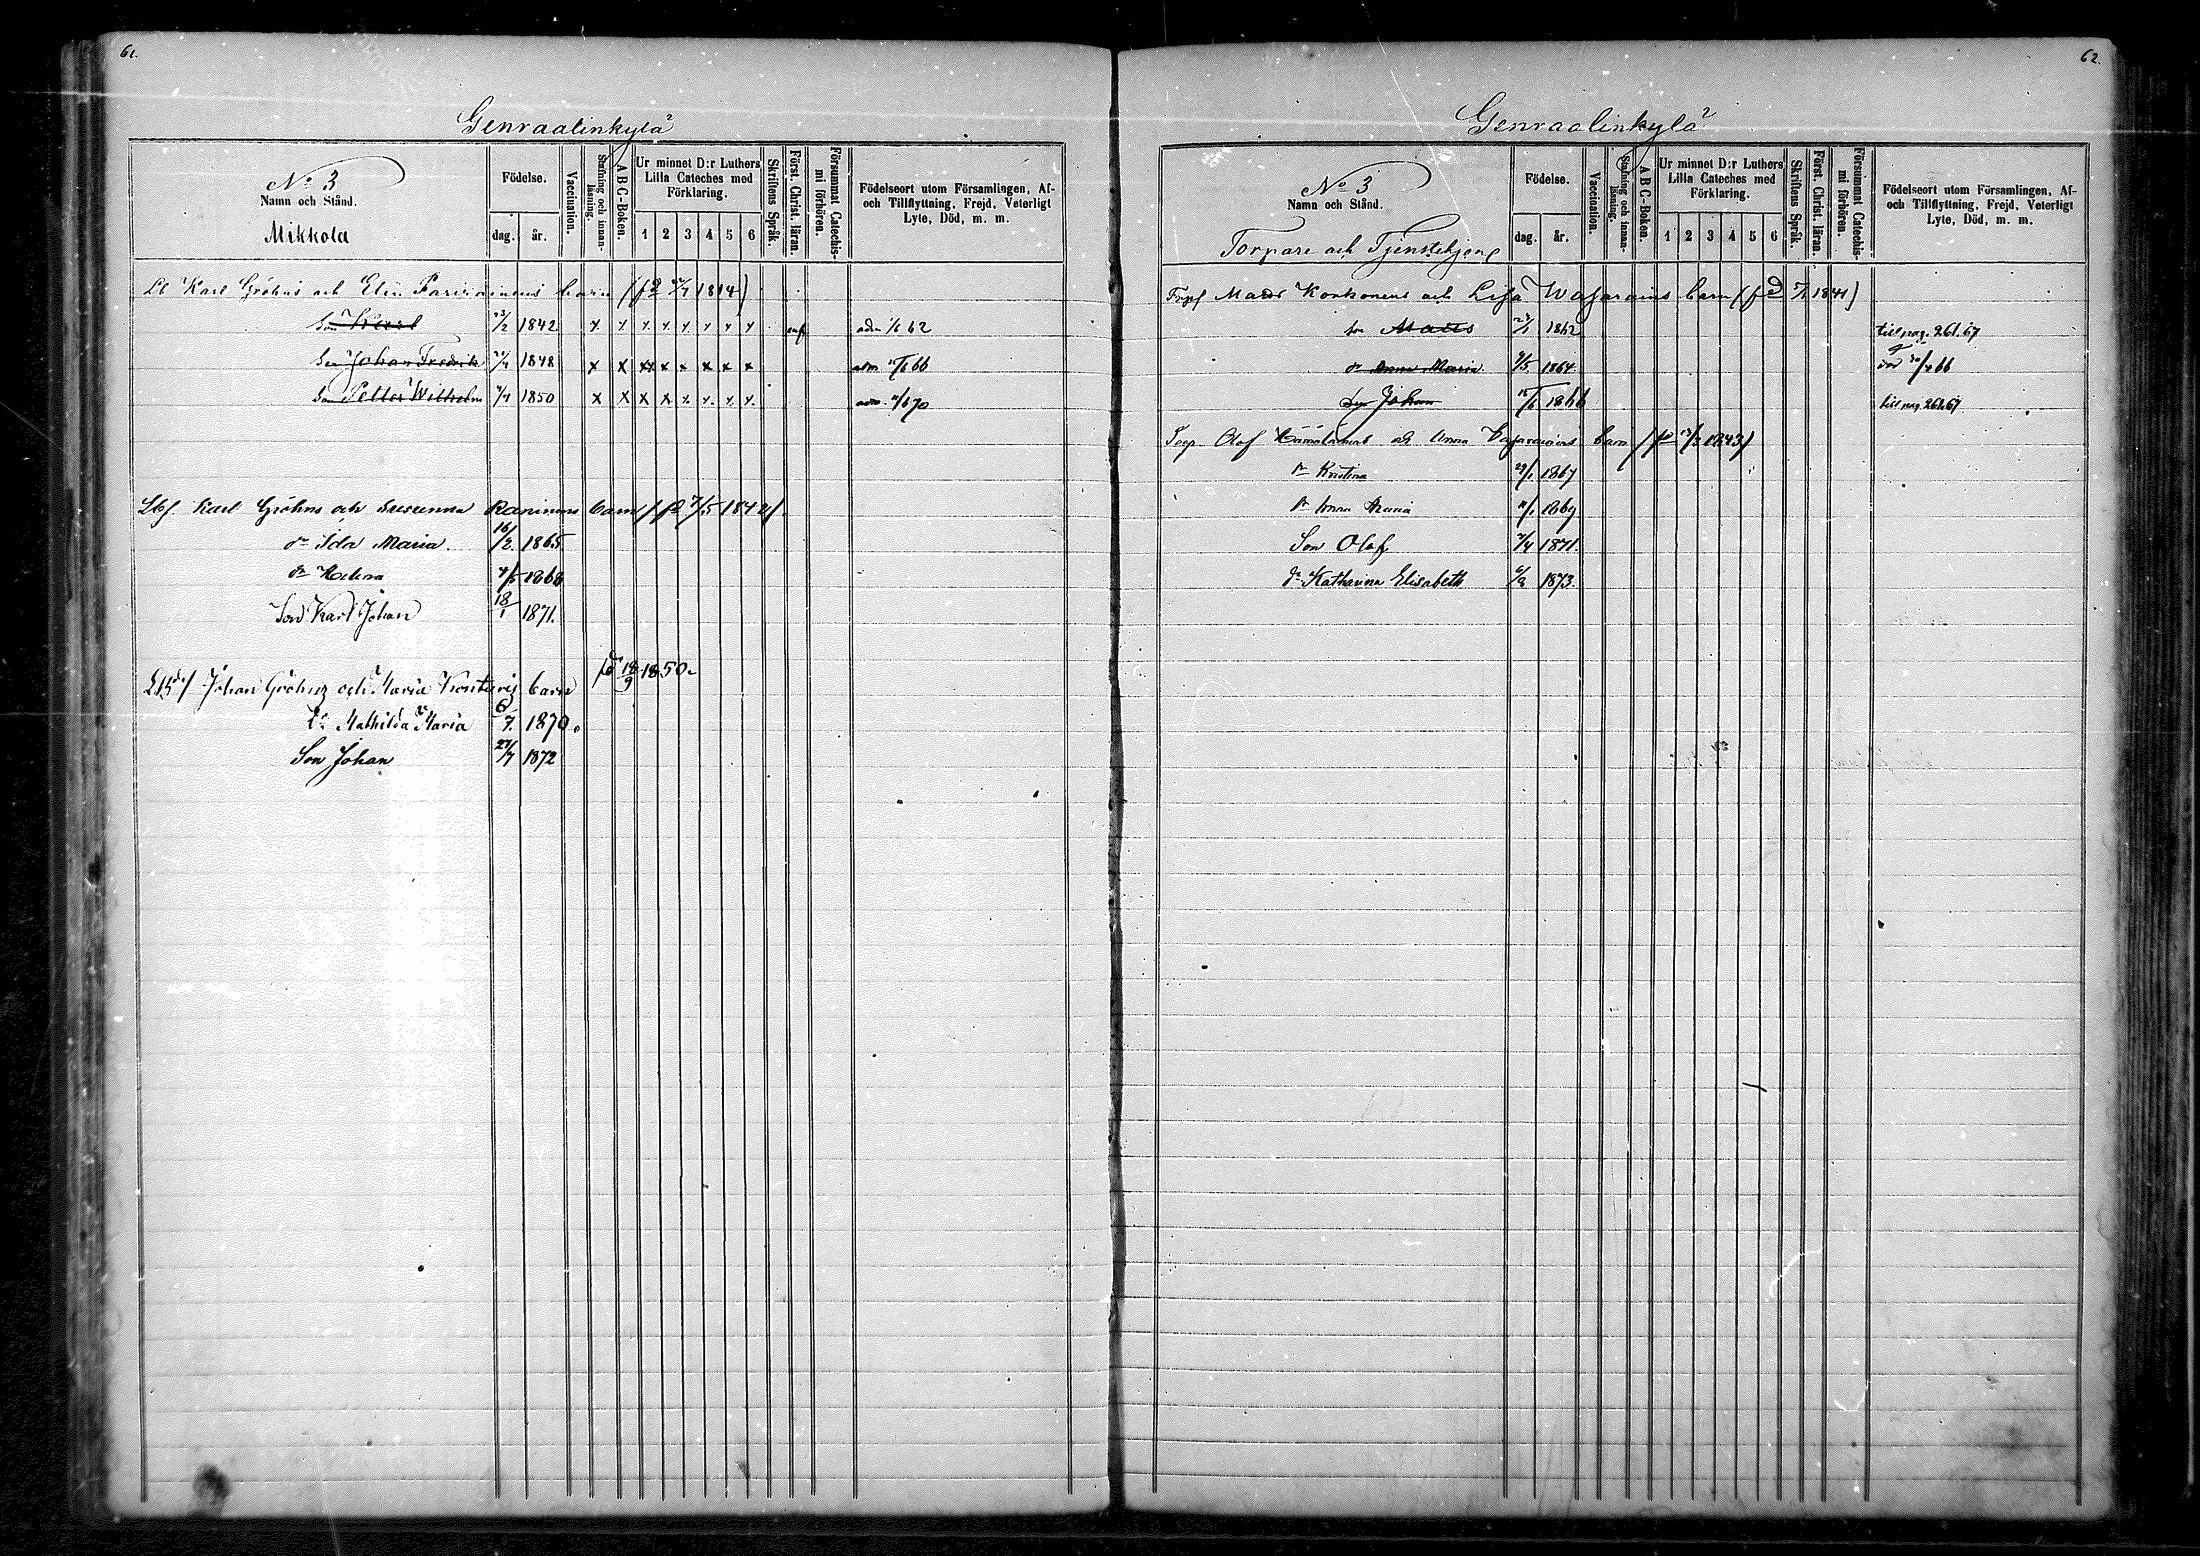 61.
Genraalinkylä
No 3
Namn och Stånd.
Mikkola
Födelse.
dag. år.
Vaccination.
Stafning och innanläsning.
A B C-Boken.
Ur minnet D:r Luthers Lilla Cateches med Förklaring.
1 2 3 4 5 6
Skriftens Språk.
Först. Christ. läran.
Försummat Catechismi förhören.
Födelseort utom Församlingen, Af- och Tillflyttning, Frejd, Veterligt Lyte, Död, m. m.
Lb Karl Gröhns och Elin barn (fd 1814)
Son Karl 23/2 1842 x x x x x x x x adm 1/6 62
Son Johan Fredrik 1848 x x xx x x x x x adm 66
Son Petter Wilhelm 1850 x x x x x x x x adm 70
Lbf. Karl Gröhns och Susanna Raninens barn (fd 7/5 1842)
dr Ida Maria. 16/2 1865.
dr Helena 4/5 1868
Son Karl Johan 18/1 1871.
Johan Gröhns och Maria barn fd 18/9 1850.
dr Mathilda Maria 6/7. 1870.
Son Johan 27/7 1872
62.
Genraalinkylä
No 3
Namn och Stånd.
Torpare och Tjenstehjon
Födelse.
dag. år.
Vaccination.
Stafning och innanläsning.
A B C-Boken.
Ur minnet D:r Luthers Lilla Cateches med Förklaring.
1 2 3 4 5 6
Skriftens Språk.
Först. Christ. läran.
Försummat Catechismi förhören.
Födelseort utom Församlingen, Af- och Tillflyttning, Frejd, Veterligt Lyte, Död, m. m.
Matts Korhonens och Lisa barn (fd 1841)
son Matts 1862 till pag. 261. 67
dr Anna Maria 9/5 1864. död 66
son Johan 1866 till pag 261. 67
Torp. Olof och Anna barn (fd 1843)
dr Kristina 29/1 1867
dr Anna Maria 1869
Son Olof 7/4 1871.
dr Katharina Elisabeth 6/8 1873.